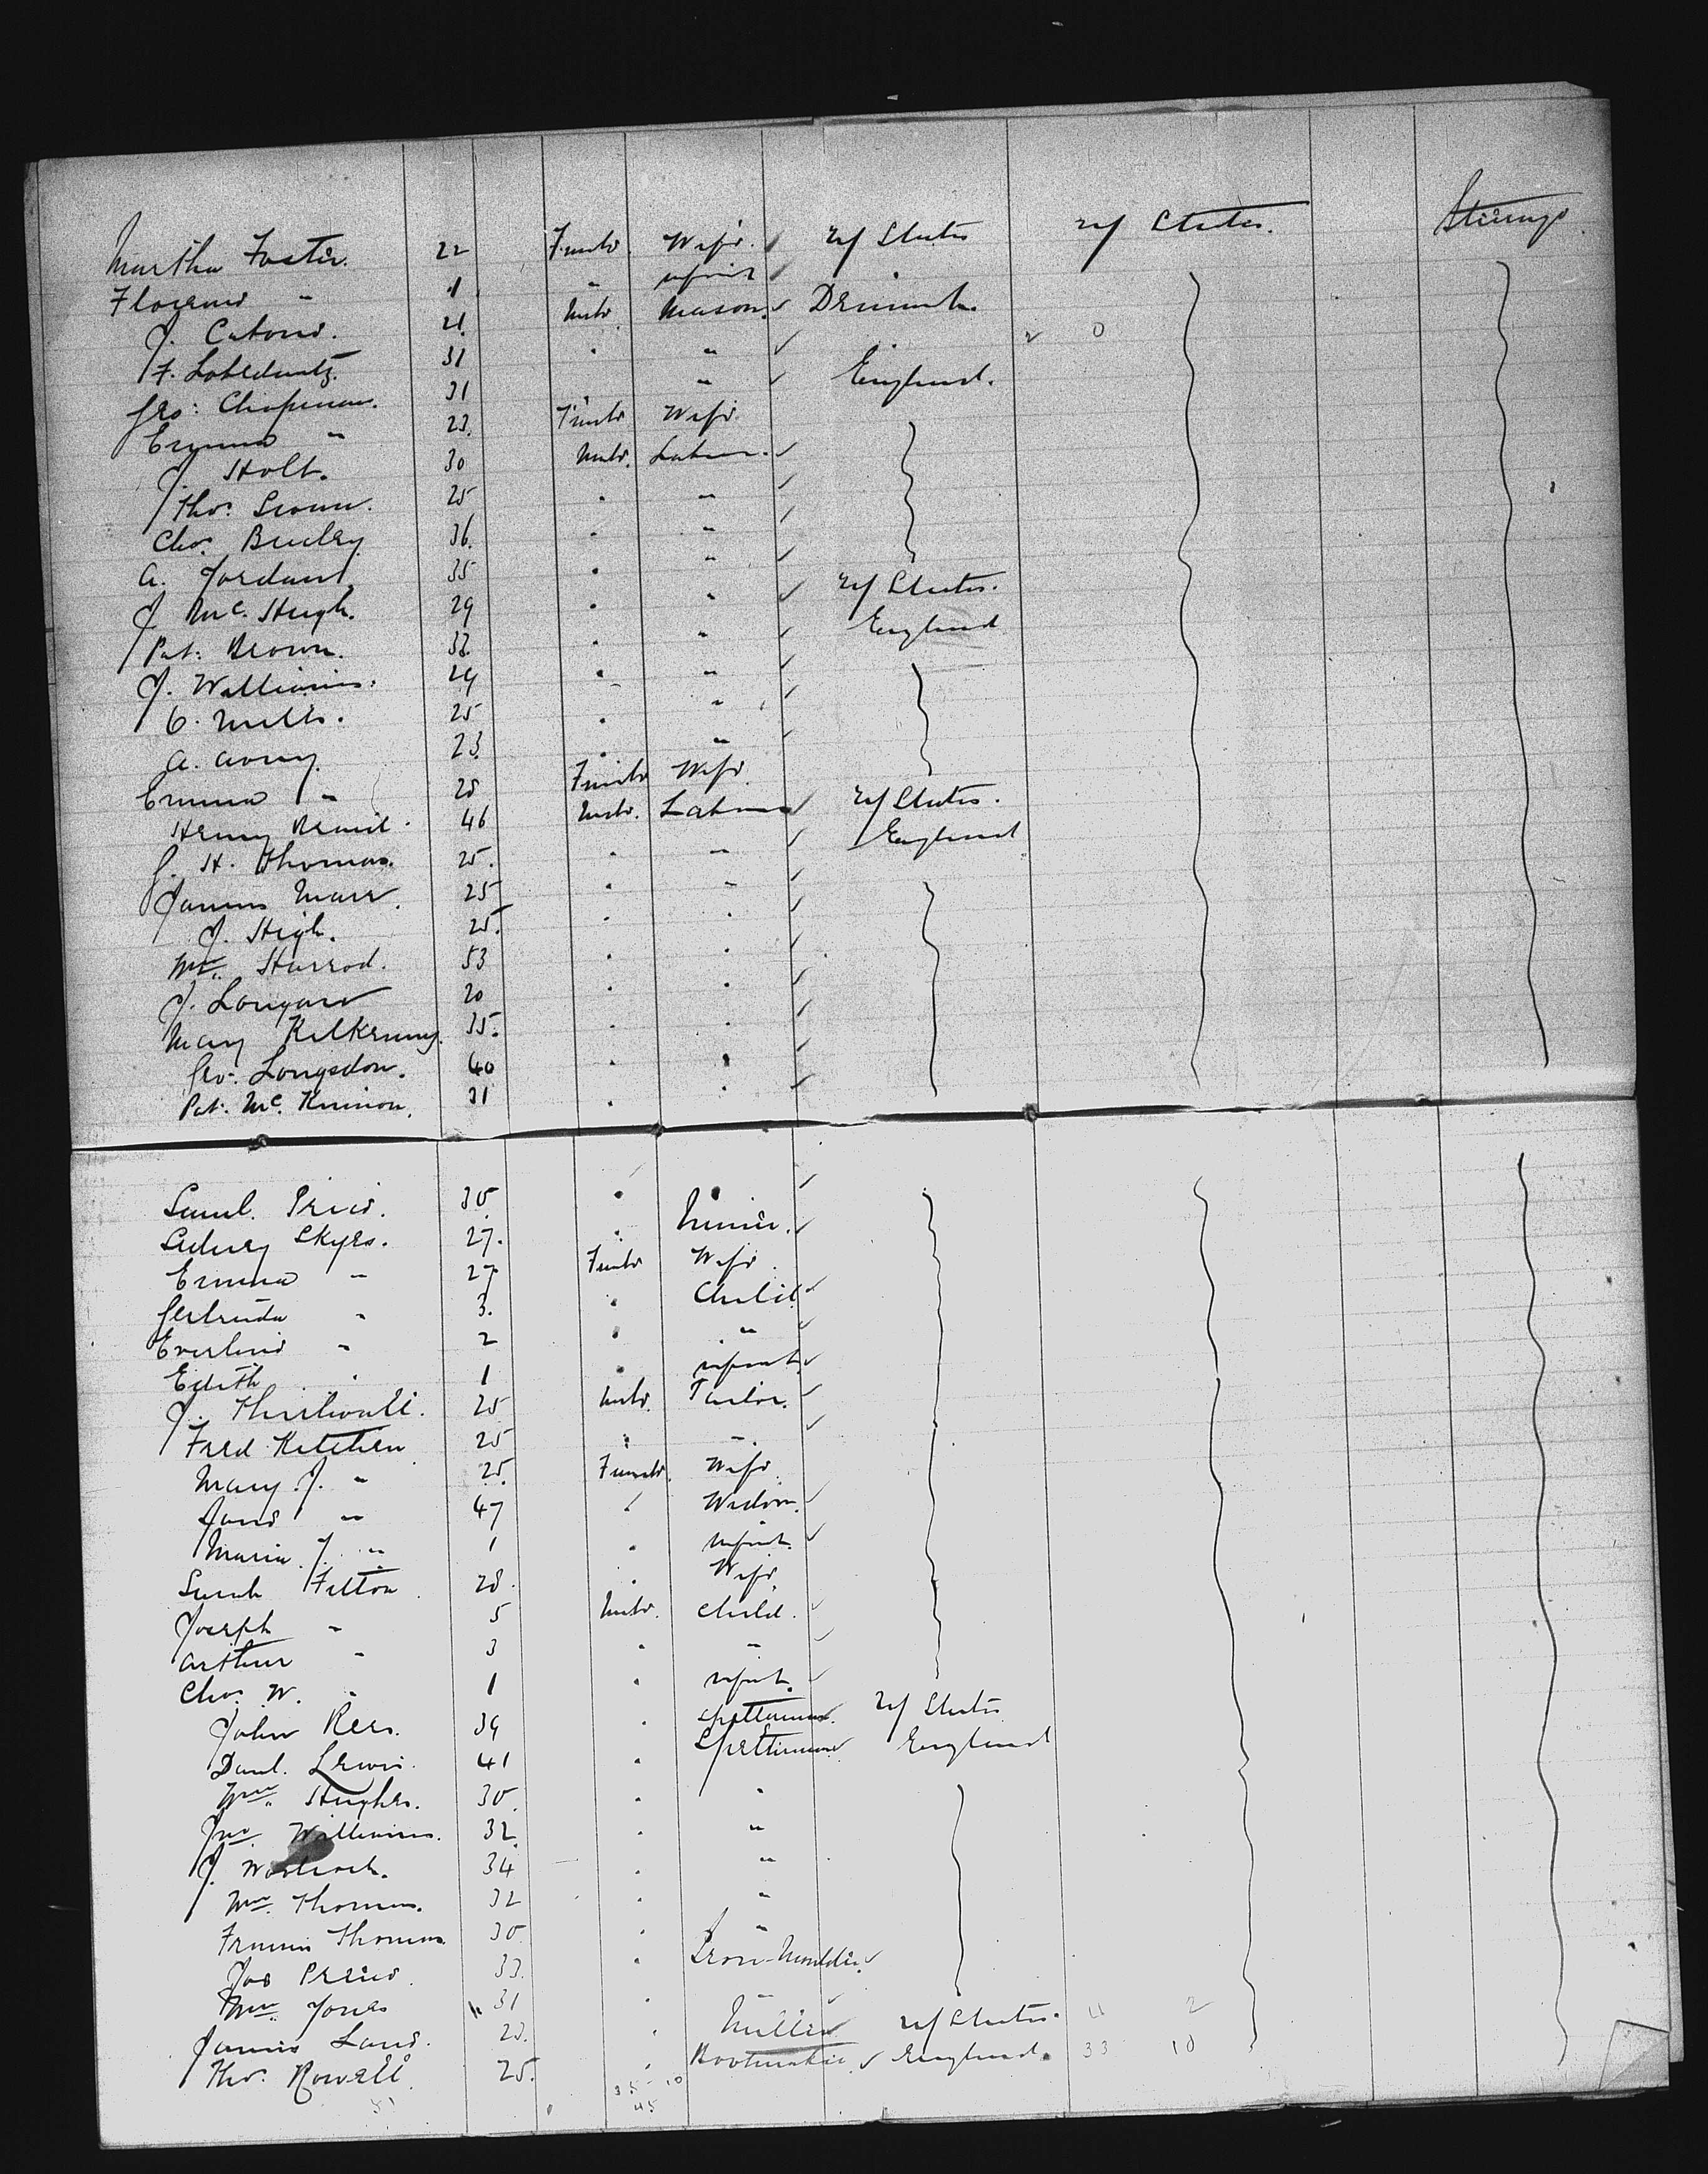 Martha Foster. 22 Female Wife. U/ States U/ States. Steerage
Florence " 1 " infant
J. 21. Male Mason. Denmark.
F. 31 . " 0
Geo: Chapman. 31 " " England.
Emma " 23. Female Wife.
J. Holt. 30 Male. Labour.
Thos. 25 . "
Chas. 36. . "
A. Jordant. 35 . "
J. McHugh. 29 . " U/ States.
Pat. Brown. 33. . " England
J. Williams. 29 . "
C. Mills. 25 . "
A. 23. . "
Emma " 28 Female Wife.
Henry 46 Male. Labour U/ States.
J. H. Thomas. 25. . " England
James Marr. 25 . "
J. High. 25. . .
Wm. Harrod. 53 . .
J. 20 . .
Mary Kilkenny. 35. . .
Geo. Longsdon. 40 . .
Pat. McKinnon. 31 . .
Saml. Price. 30. . .
Sidney Skyes. 27. . Miner.
Emma " 27 Female Wife.
Gertrude " 3. . Child
" 2 . "
Edith . 1 . infant
J. 25 Male. Tailor.
Fred Kitchen 25 . "
Mary J. " 25. Female. Wife.
Jane " 47 " Widow.
Maria J. " 1 . infant.
Sarah Fitton 28. . Wife.
Joseph " 5 Male. Child.
Arthur " 3 . "
Chas. W. " 1 . infant.
John Rees. 39 . U/ States
Danl. Lewis. 41 . England
Wm. Hughes. 30. . "
Jno. Williams. 32. . "
J. 34 . "
Wm. Thomas. 32 . "
Francis Thomas. 30. . "
Jos 33. . Iron-Moulder.
Wm. Jones 31 . "
James 28. . Miller U/ States. 11 2
Thos. Rowell 25. . England. 33 10